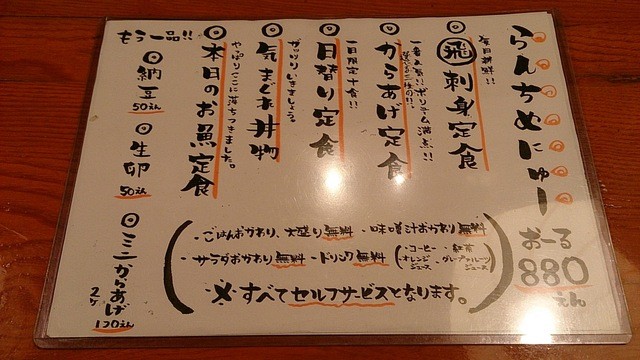 らんちめにゅー
おーる
880えん
毎日新鮮!!
◎飛刺身定食
一番人気!!ボリューム満点!!
◎からあげ定食
一日限定十食!!
◎日替り定食
ガッツリいきましょう。
◎気まぐれ丼物
やっぱりここに落ちつきました。
◎本日のお魚定食
もう一品!!
◎納豆
50えん
◎生卵
50えん
◎ミニからあげ
2ヶ
120えん
・ごはんおかわり、大盛り無料・味噌汁おかわり無料
・サラダおかわり無料・ドリンク無料
(・コーヒー・紅茶
・オレンジジュース・グレープフルーツジュース)
※すべてセルフサービスとなります。